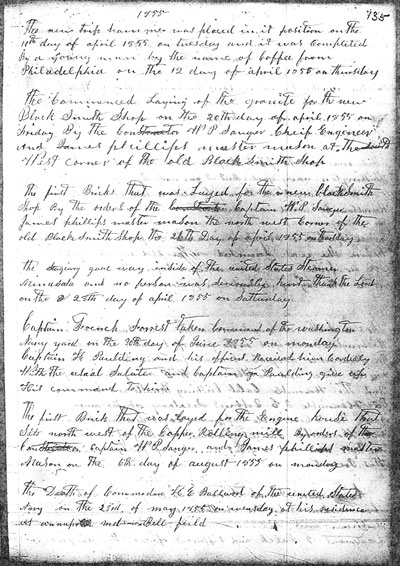 1855
135
The new trip hammer was placed in it position on the
10th day of april 1855 on tuesday and it was Completed
By a young man by the name of Coffee from
Philadelphia on the 12 day of april 1855 on thursday
the Commenced Laying of the granite for the new
Black Smith Shop on the 20th day of april 1855 on
Friday By the Constructor W P Sanger Cheif Engineer
And James phillips master mason at the
West corner of the old Black Smith Shop
the first Bricks that was Layed for the new Blacksmith
Shop By the orders of the Constructor Captain W P Sanger
James phillips master mason the north west Corner of the
old Black Smith Shop the 26th Day of april 1855 on thursday
the staging gave way inside of the united States Steamer
Minnesota and no person was seriously hurt thank the Lord
on the 28th day of april 1855 on Satturday
Captain French Forrest taken Command of the washington
Navy yard on the 30th day of June 1855 on monday
Captain H Paulding and his officers Received him Cordialy
With the usual Salute and Captain Paulding give up
His command to him
The first Brick that was Layed for the Engine house that
Sets north west of the Copper Rolling mill By orders of the
Constructor Captain W P Sanger and James phillips master
Mason on the 6th day of august 1855 on monday
the Death of Commodore H E Ballard of the united States
Navy on the 23rd of may 1855 on wensday at his residence
At annapolis md